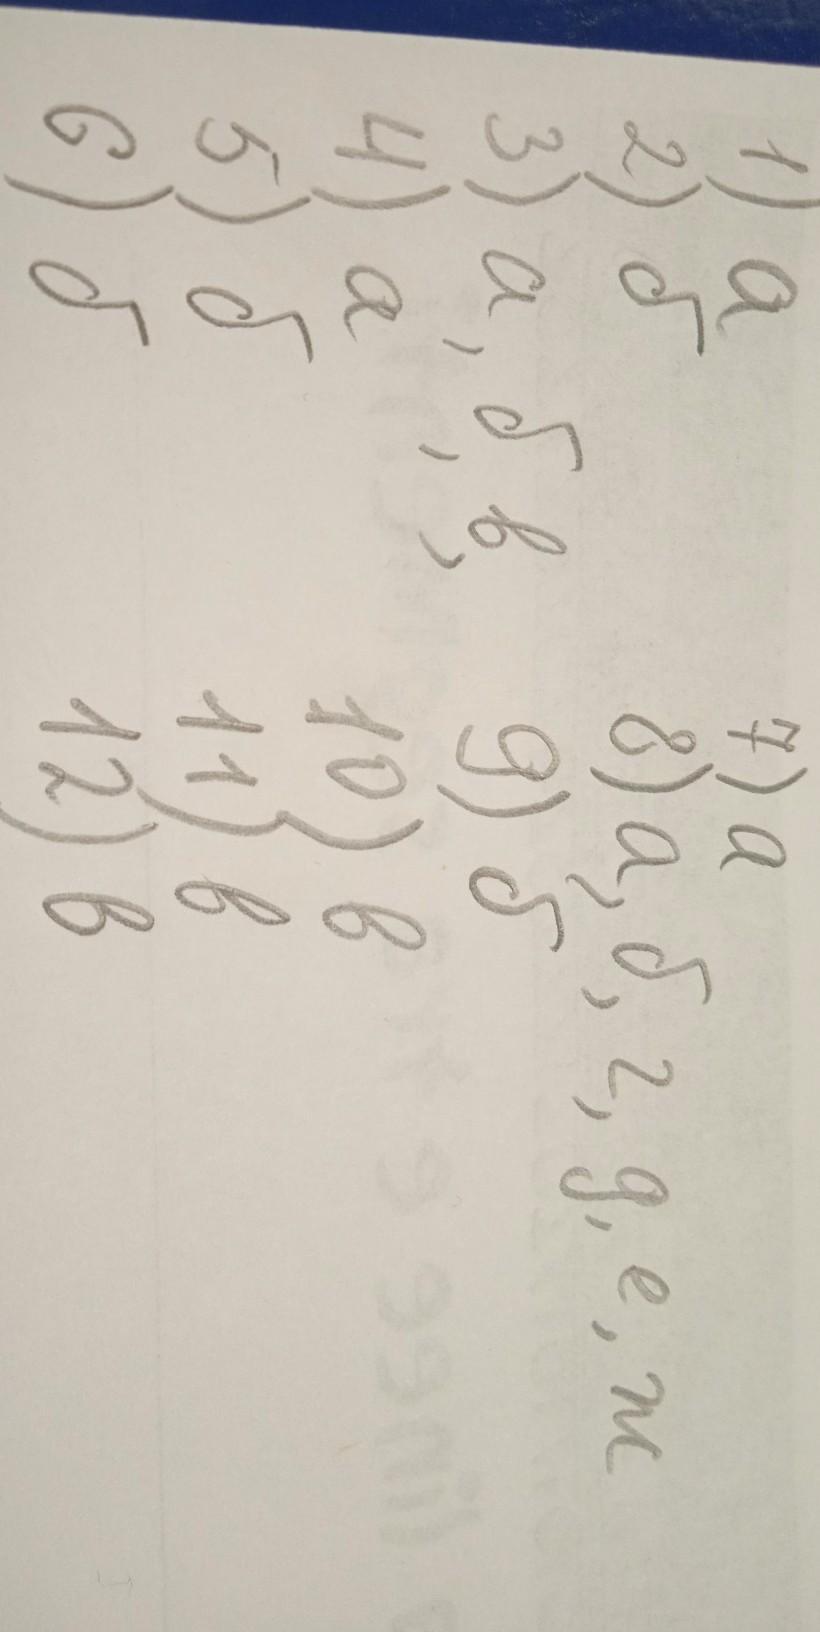 1) а
2) б
3) а, б, в,
4) а
5) б
6) б
7) а
8) а, б, г, д, е, ж
9) б
10) в
11) в
12) в